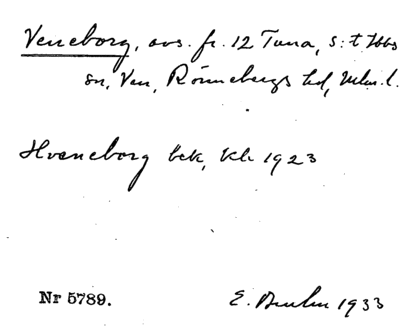 Veneborg, avs. fr. 12 Tuna, S:t Ibbs
sn, Ven, Rönnebergs hd, Mlm. l.
Hveneborg bek, Kli 1923
Nr 5789.
E. 1933